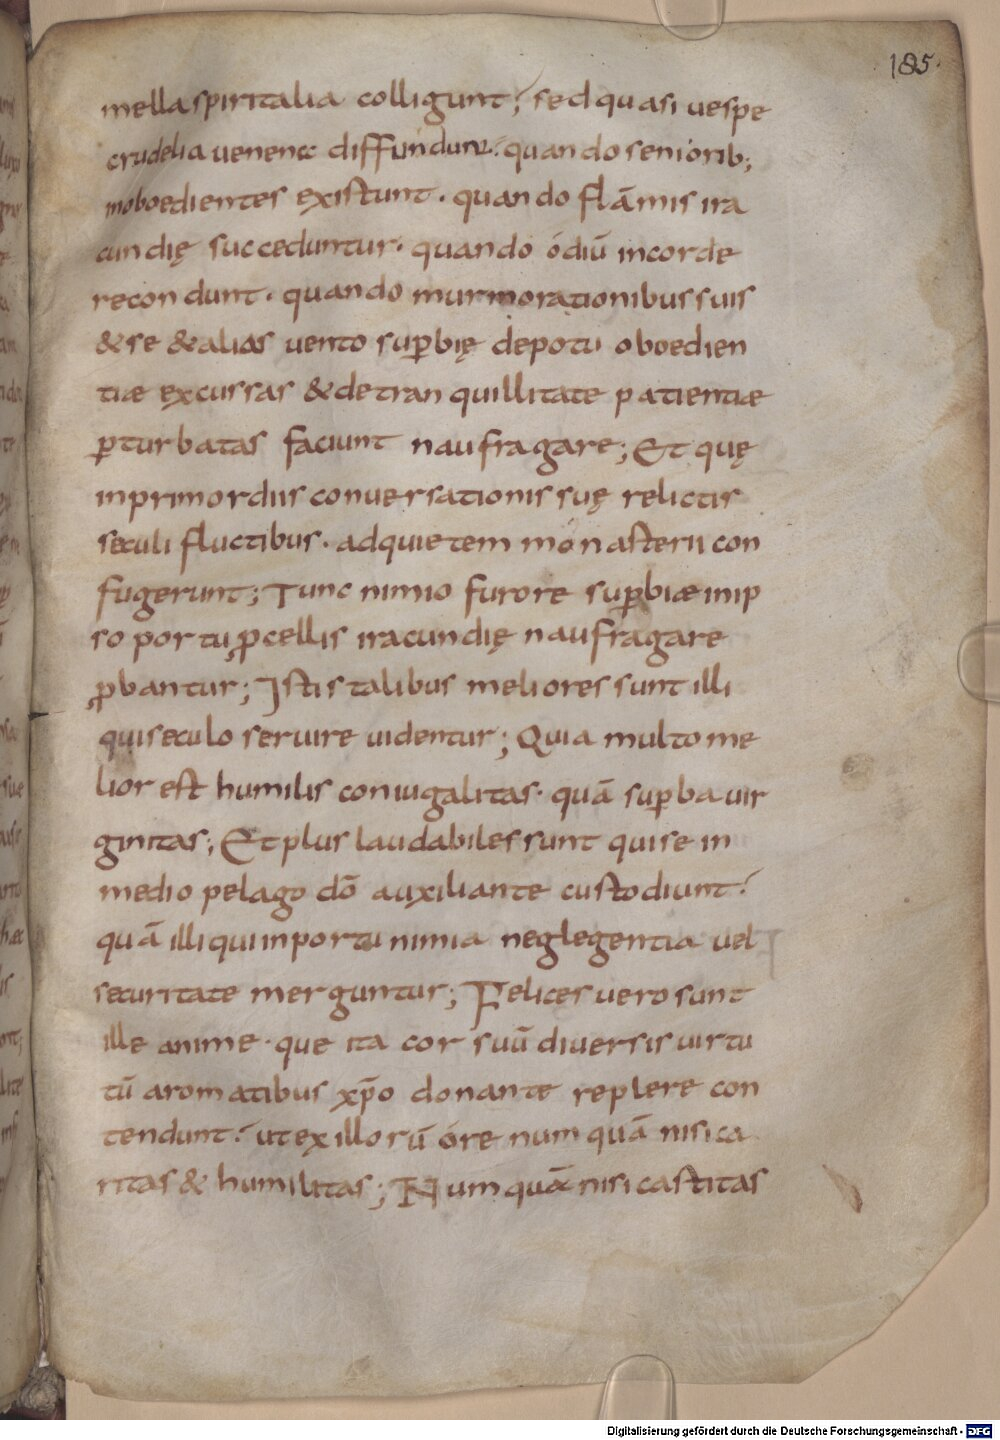 185.
mella spiritalia colligunt; sed quasi uespe
crudelia uenena diffundunt. quando seniorib;
inoboedientes existunt. quando flāmis ira
cundię succeduntur. quando ódiū incorde
recondunt. quando murmorationibus suis
& se & alias uento suꝑbię deportu oboedien
tiae excussas & detranquillitate patientiae
ꝑturbatas faciunt naufragare; Et quę
inprimordiis conuersationis suę relictis
seculi fluctibus. adquietem monasterii con
fugerunt; Tunc nimio furore suꝑbiae inip
so portu ꝓcellis iracundię naufragare
ꝓbantur; Istis talibus meliores sunt illi
qui seculo seruire uidentur; Quia multo me
lior est humilis coniugalitas. quā suꝑba uir
ginitas; Et plus laudabiles sunt qui se in
medio pelago dō auxiliante custodiunt.
quā illi qui inportu nimia neglegentia uel
securitate merguntur; Felices uero sunt
ille anime. que ita cor suū diuersis uirtu
tū aromatibus xp̄o donante replere con
tendunt. ut ex illorū óre numquā nisi ca
ritas & humilitas; Numquā nisi castitas
Digitalisierung gefördert durch die Deutsche Forschungsgemeinschaft - DFG